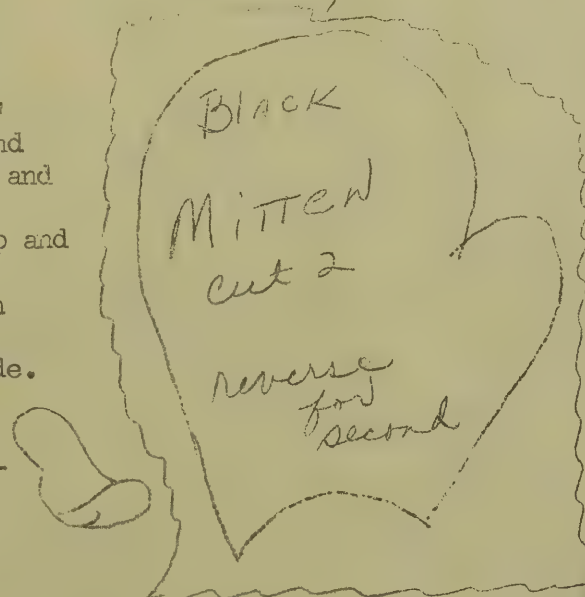 nd
and
o and
n
de.
Black
Mitten
cut 2
reverse
for
second